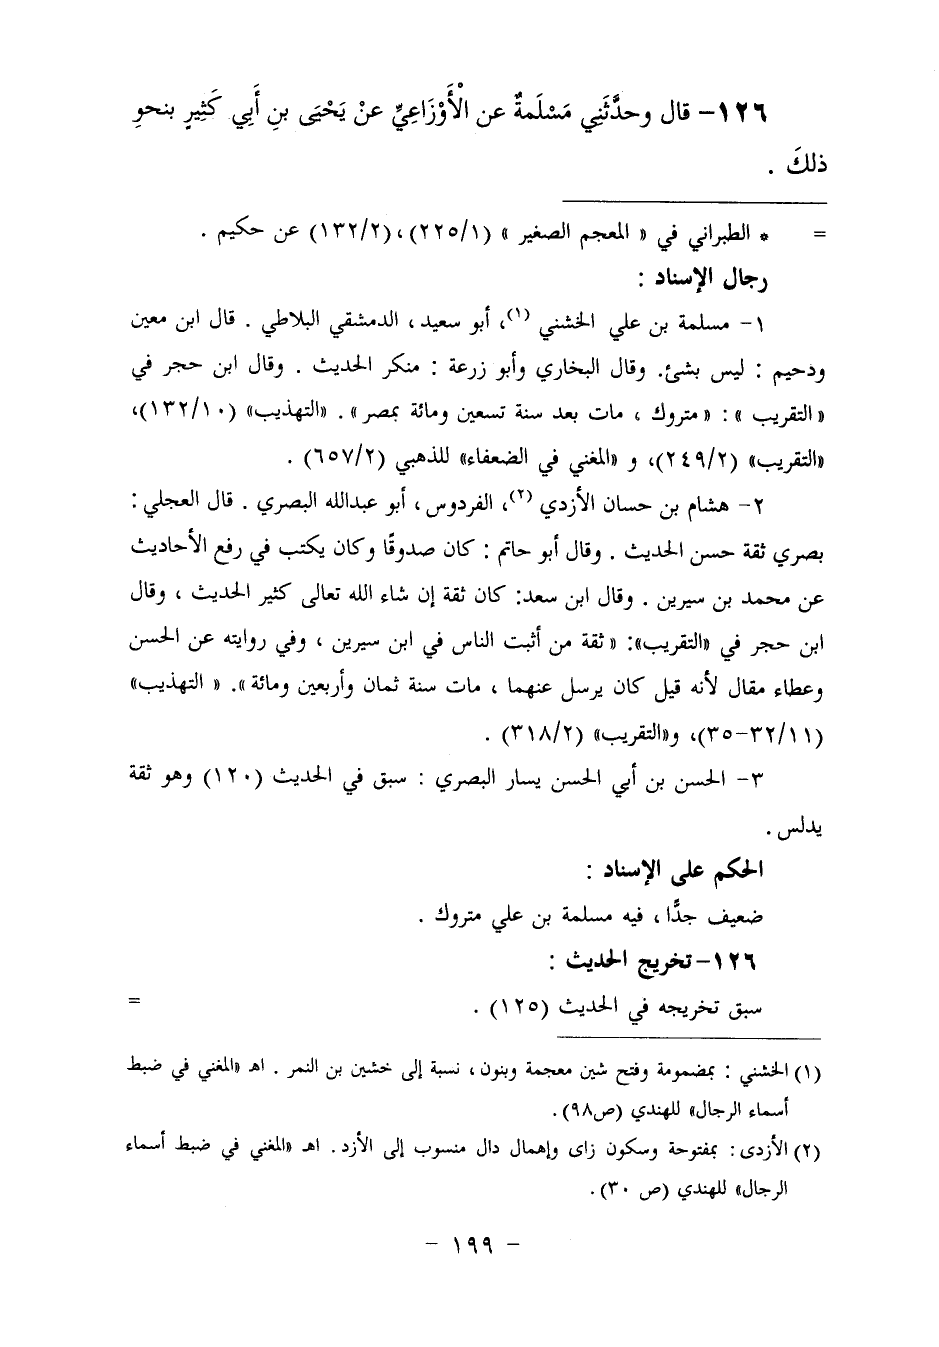 ١٢٦- قال وحدَّثَنِي مَسْلَمةُ عن الْأَوْزَاعِيِّ عنْ يَحْيَى بنِ أَبِي كَثِيرٍ بنحوِ
ذلكَ .
= * الطبراني في « المعجم الصغير » (٢٢٥/١)، (١٣٢/٢) عن حكيم .
رجال الإسناد :
١- مسلمة بن علي الخشني (١)، أبو سعيد ، الدمشقي البلاطي . قال ابن معين
ودحيم : ليس بشئ. وقال البخاري وأبو زرعة : منكر الحديث . وقال ابن حجر في
«التقريب »: «متروك ، مات بعد سنة تسعين ومائة بمصر». «التهذيب» (١٣٢/١٠)،
«التقريب» (٢٤٩/٢)، و «المغني في الضعفاء» للذهبي (٦٥٧/٢) .
٢- هشام بن حسان الأزدي (٢)، الفردوس ، أبو عبدالله البصري . قال العجلي :
بصري ثقة حسن الحديث . وقال أبو حاتم : كان صدوقًا وكان يكتب في رفع الأحاديث
عن محمد بن سيرين . وقال ابن سعد: كان ثقة إن شاء الله تعالى كثير الحديث ، وقال
ابن حجر في «التقريب»: « ثقة من أثبت الناس في ابن سيرين ، وفي روايته عن الحسن
وعطاء مقال لأنه قيل كان يرسل عنهما ، مات سنة ثمان وأربعين ومائة ». « التهذيب»
(٣٢/١١-٣٥)، و«التقريب» (٣١٨/٢) .
٣- الحسن بن أبي الحسن يسار البصري : سبق في الحديث (١٢٠) وهو ثقة
يدلس .
الحكم على الإسناد :
ضعيف جدًّا ، فيه مسلمة بن علي متروك .
١٢٦- تخريج الحديث :
سبق تخريجه في الحديث (١٢٥) . =
(١) الخشني : بمضمومة وفتح شين معجمة وبنون ، نسبة إلى خشين بن النمر . اهـ «المغني في ضبط
أسماء الرجال» للهندي (ص٩٨) .
(٢) الأزدى : بمفتوحة وسكون زاى وإهمال دال منسوب إلى الأزد . اهـ «المغني في ضبط أسماء
الرجال» للهندي (ص ٣٠) .
- ١٩٩ -